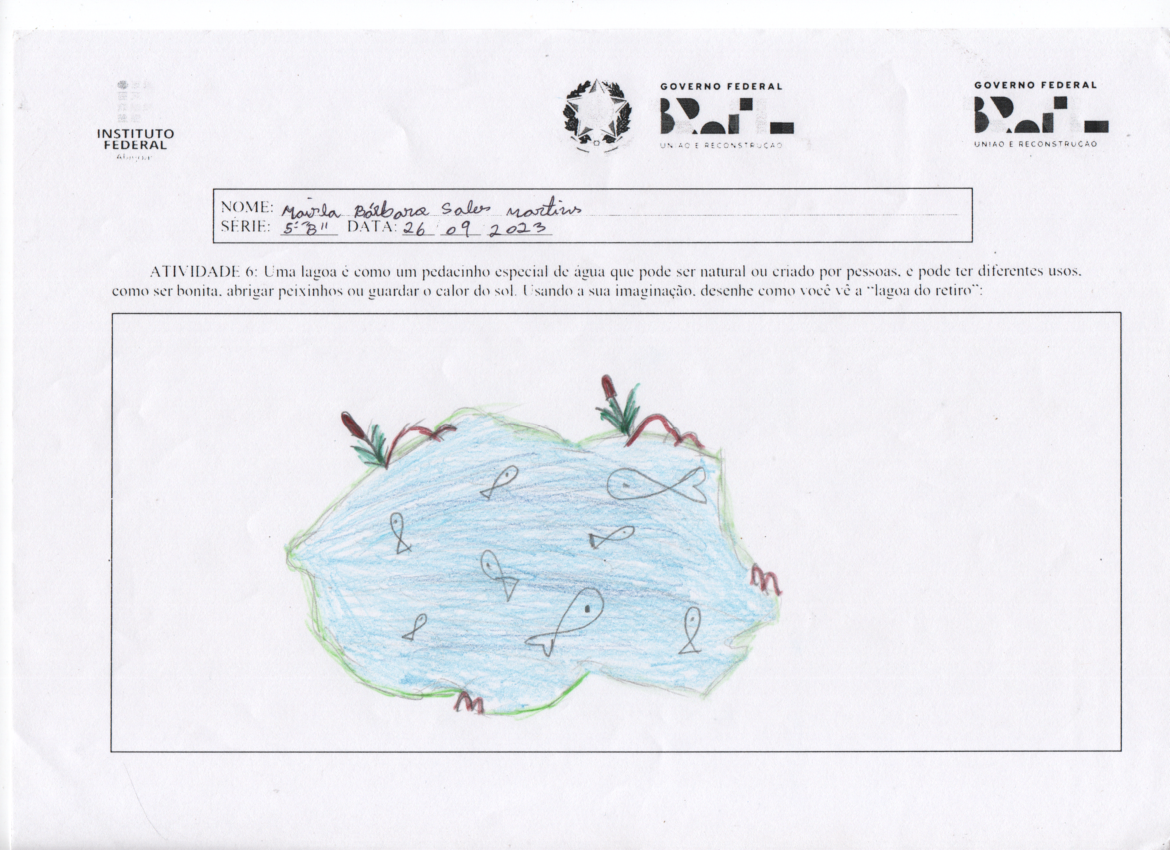 INSTITUTO
FEDERAL
GOVERNO FEDERAL
BRASIL
UNIÃO E RECONSTRUÇÃO
GOVERNO FEDERAL
BRASIL
UNIÃO E RECONSTRUÇÃO
NOME: Bárbara Sales Martins
SÉRIE: 5º "B" DATA: 26 09 2023
ATIVIDADE 6: Uma lagoa é como um pedacinho especial de água que pode ser natural ou criado por pessoas, e pode ter diferentes usos,
como ser bonita, abrigar peixinhos ou guardar o calor do sol. Usando a sua imaginação, desenhe como você vê a “lagoa do retiro”: